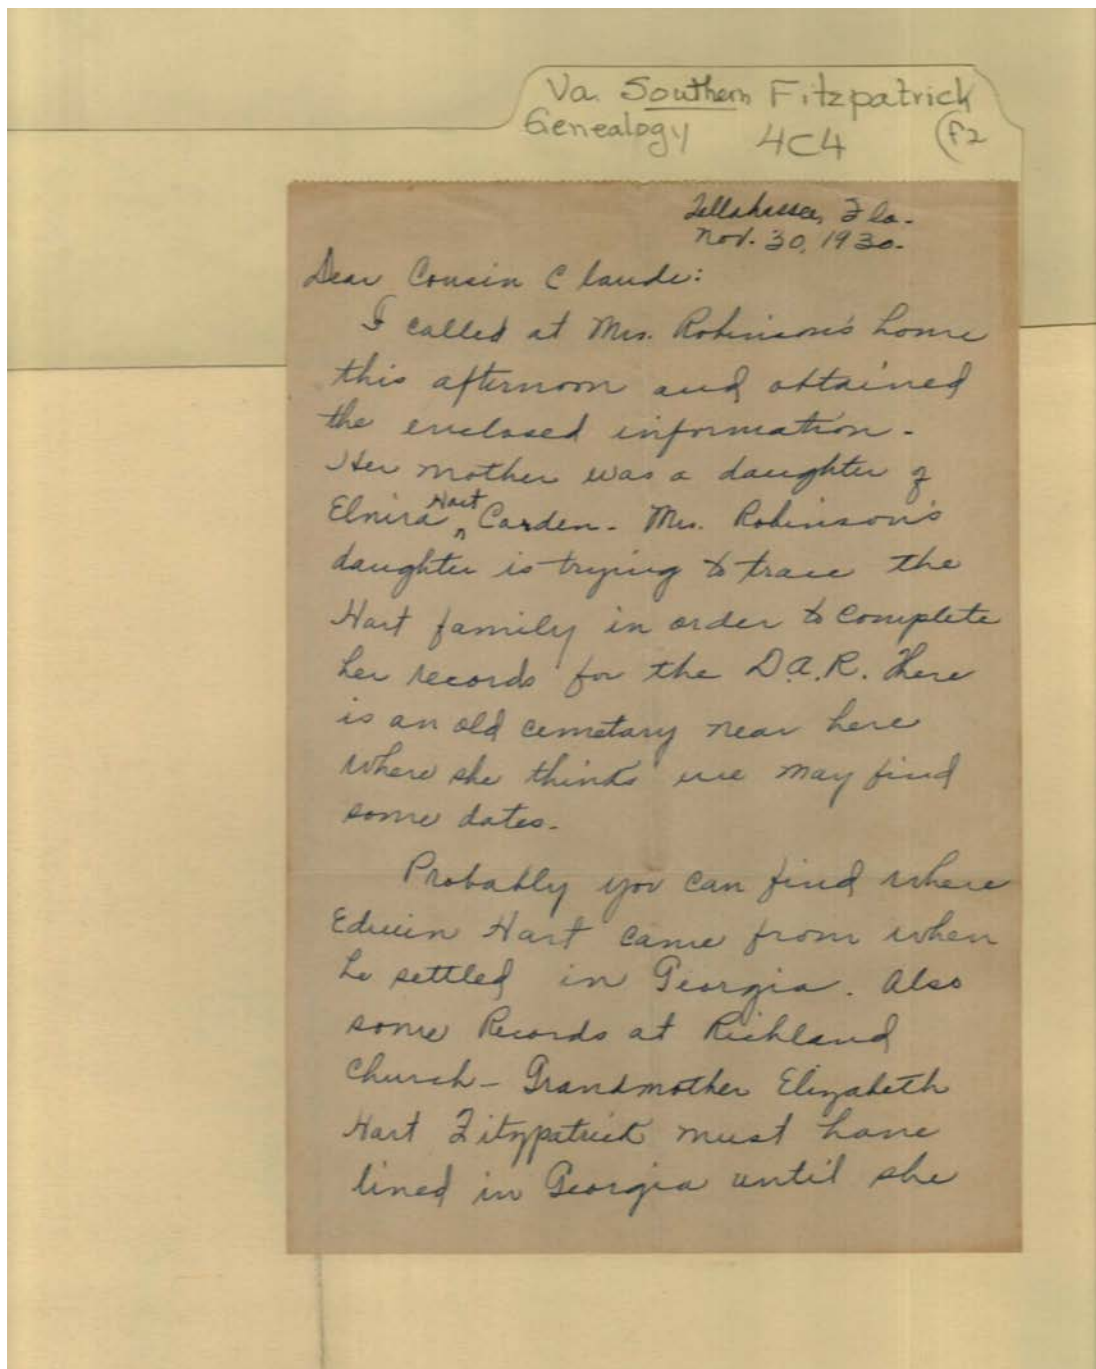 Va. Southern Fitzpatrick
Genealogy 4C4 F2
Tallahassee, Fla.
Nov. 30, 1930.
Dear Cousin Claude:
I called at Mrs. Robinson's home
this afternoon and obtained
the enclosed information.
Her mother was a daughter of
Elmira Hart Carden. Mrs. Robinson's
daughter is trying to trace the
Hart family in order to complete
her records for the D.A.R. There
is an old cemetary near here
where she thinks we may find
some dates.
Probably you can find where
Edwin Hart came from when
he settled in Georgia. Also
some Records at Richland
Church - Grandmother Elizabeth
Hart Fitzpatrick must have
lived in Georgia until she